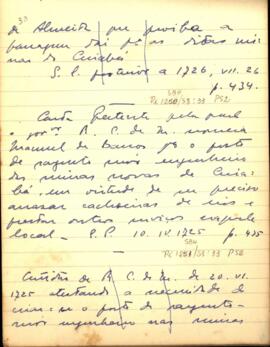 30
de Almeida que proíba a
passagem daí p.ª as ditas mi-
nas de Cuiabá
S. P. posterior a 1726, VII. 26
p. 434.
SBH
Pi 1250/58:33 P52
Carta Patente pela qual
o gov.or R. C. de M. nomeia
Manuel de Barros p.ª o posto
de sargento mór engenheiro
das minas novas de Cuia-
bá, em virtude de ser preciso
arrasar cachoeiras de rios e
prestar outros serviços
local. — S. P. 10. IV. 1725 p. 435
SBH
Pi 1251/58:33 P52
Certidão de R. C. de M. de 20. VII.
1725 atestando a necessidade de
o posto de sargento-
mór engenheiro nas minas